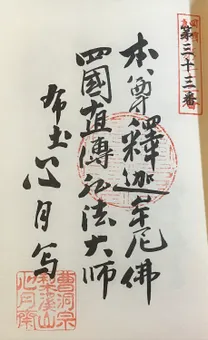 第三十三番
本尊釋迦牟尼佛
四國直傳弘法大師
布土心月斎
曹洞宗
梨溪山
心月齋